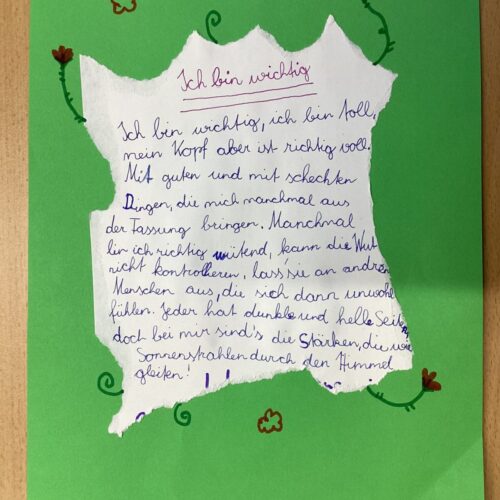 Ich bin wichtig
Ich bin wichtig, ich bin toll,
mein Kopf aber ist richtig voll.
Mit guten und mit schechten
Dingen, die mich manchmal aus
der Fassung bringen. Manchmal
bin ich richtig wütend, kann die Wut
nicht kontrollieren, lass sie an andren
Menschen aus, die sich dann unwohl
fühlen. Jeder hat dunkle und helle Seiten,
doch bei mir sind's die Stärken, die wie
Sonnenstrahlen durch den Himmel
gleiten!